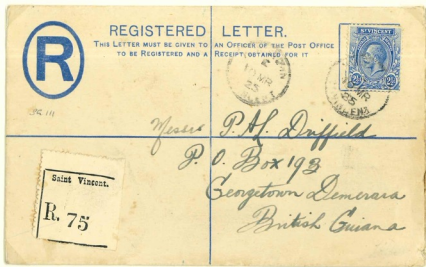 REGISTERED LETTER.
THIS LETTER MUST BE GIVEN TO AN OFFICER OF THE POST OFFICE
TO BE REGISTERED AND A RECEIPT OBTAINED FOR IT
R
ST VINCENT
2½ 2½
MR
25
MR
25
Messrs P. & L. Driffield
P. O. Box 193
Georgetown Demerara
British Guiana
Saint Vincent.
R. 75